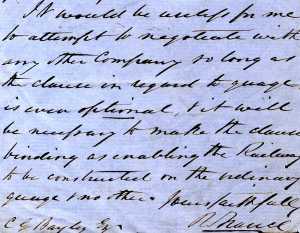 It would be useless for me
to attempt to negotiate with
any other Company so long as
the clause in regard to guage
is even optional, & it will
be necessary to make the clause
binding as enabling the Railway
to be constructed on the ordinary
guage & no other. Yours faithfully
C G Bayley Esq.